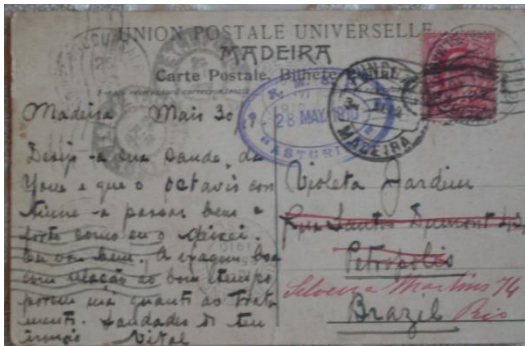 UNION POSTALE UNIVERSELLE
MADEIRA
Carte Postale, Bilhete
R.M.S.P.
28 MAY 1910
ASTURIAS
FUNCHAL
MADEIRA
Madeira Maio 30
Desejo-a sua saude, da
Yone e que o octavio con
tinue a passar bem e
forte como eu o deixei.
Eu vou bem. A viagem boa
com relação ao bom tempo
porem má quanto ao trata
mento. Saudades do teu
irmão Vital
Violeta Jardim
Rua Santos Dumont
Petropolis
Silveira Martins 74
Brazil Rio